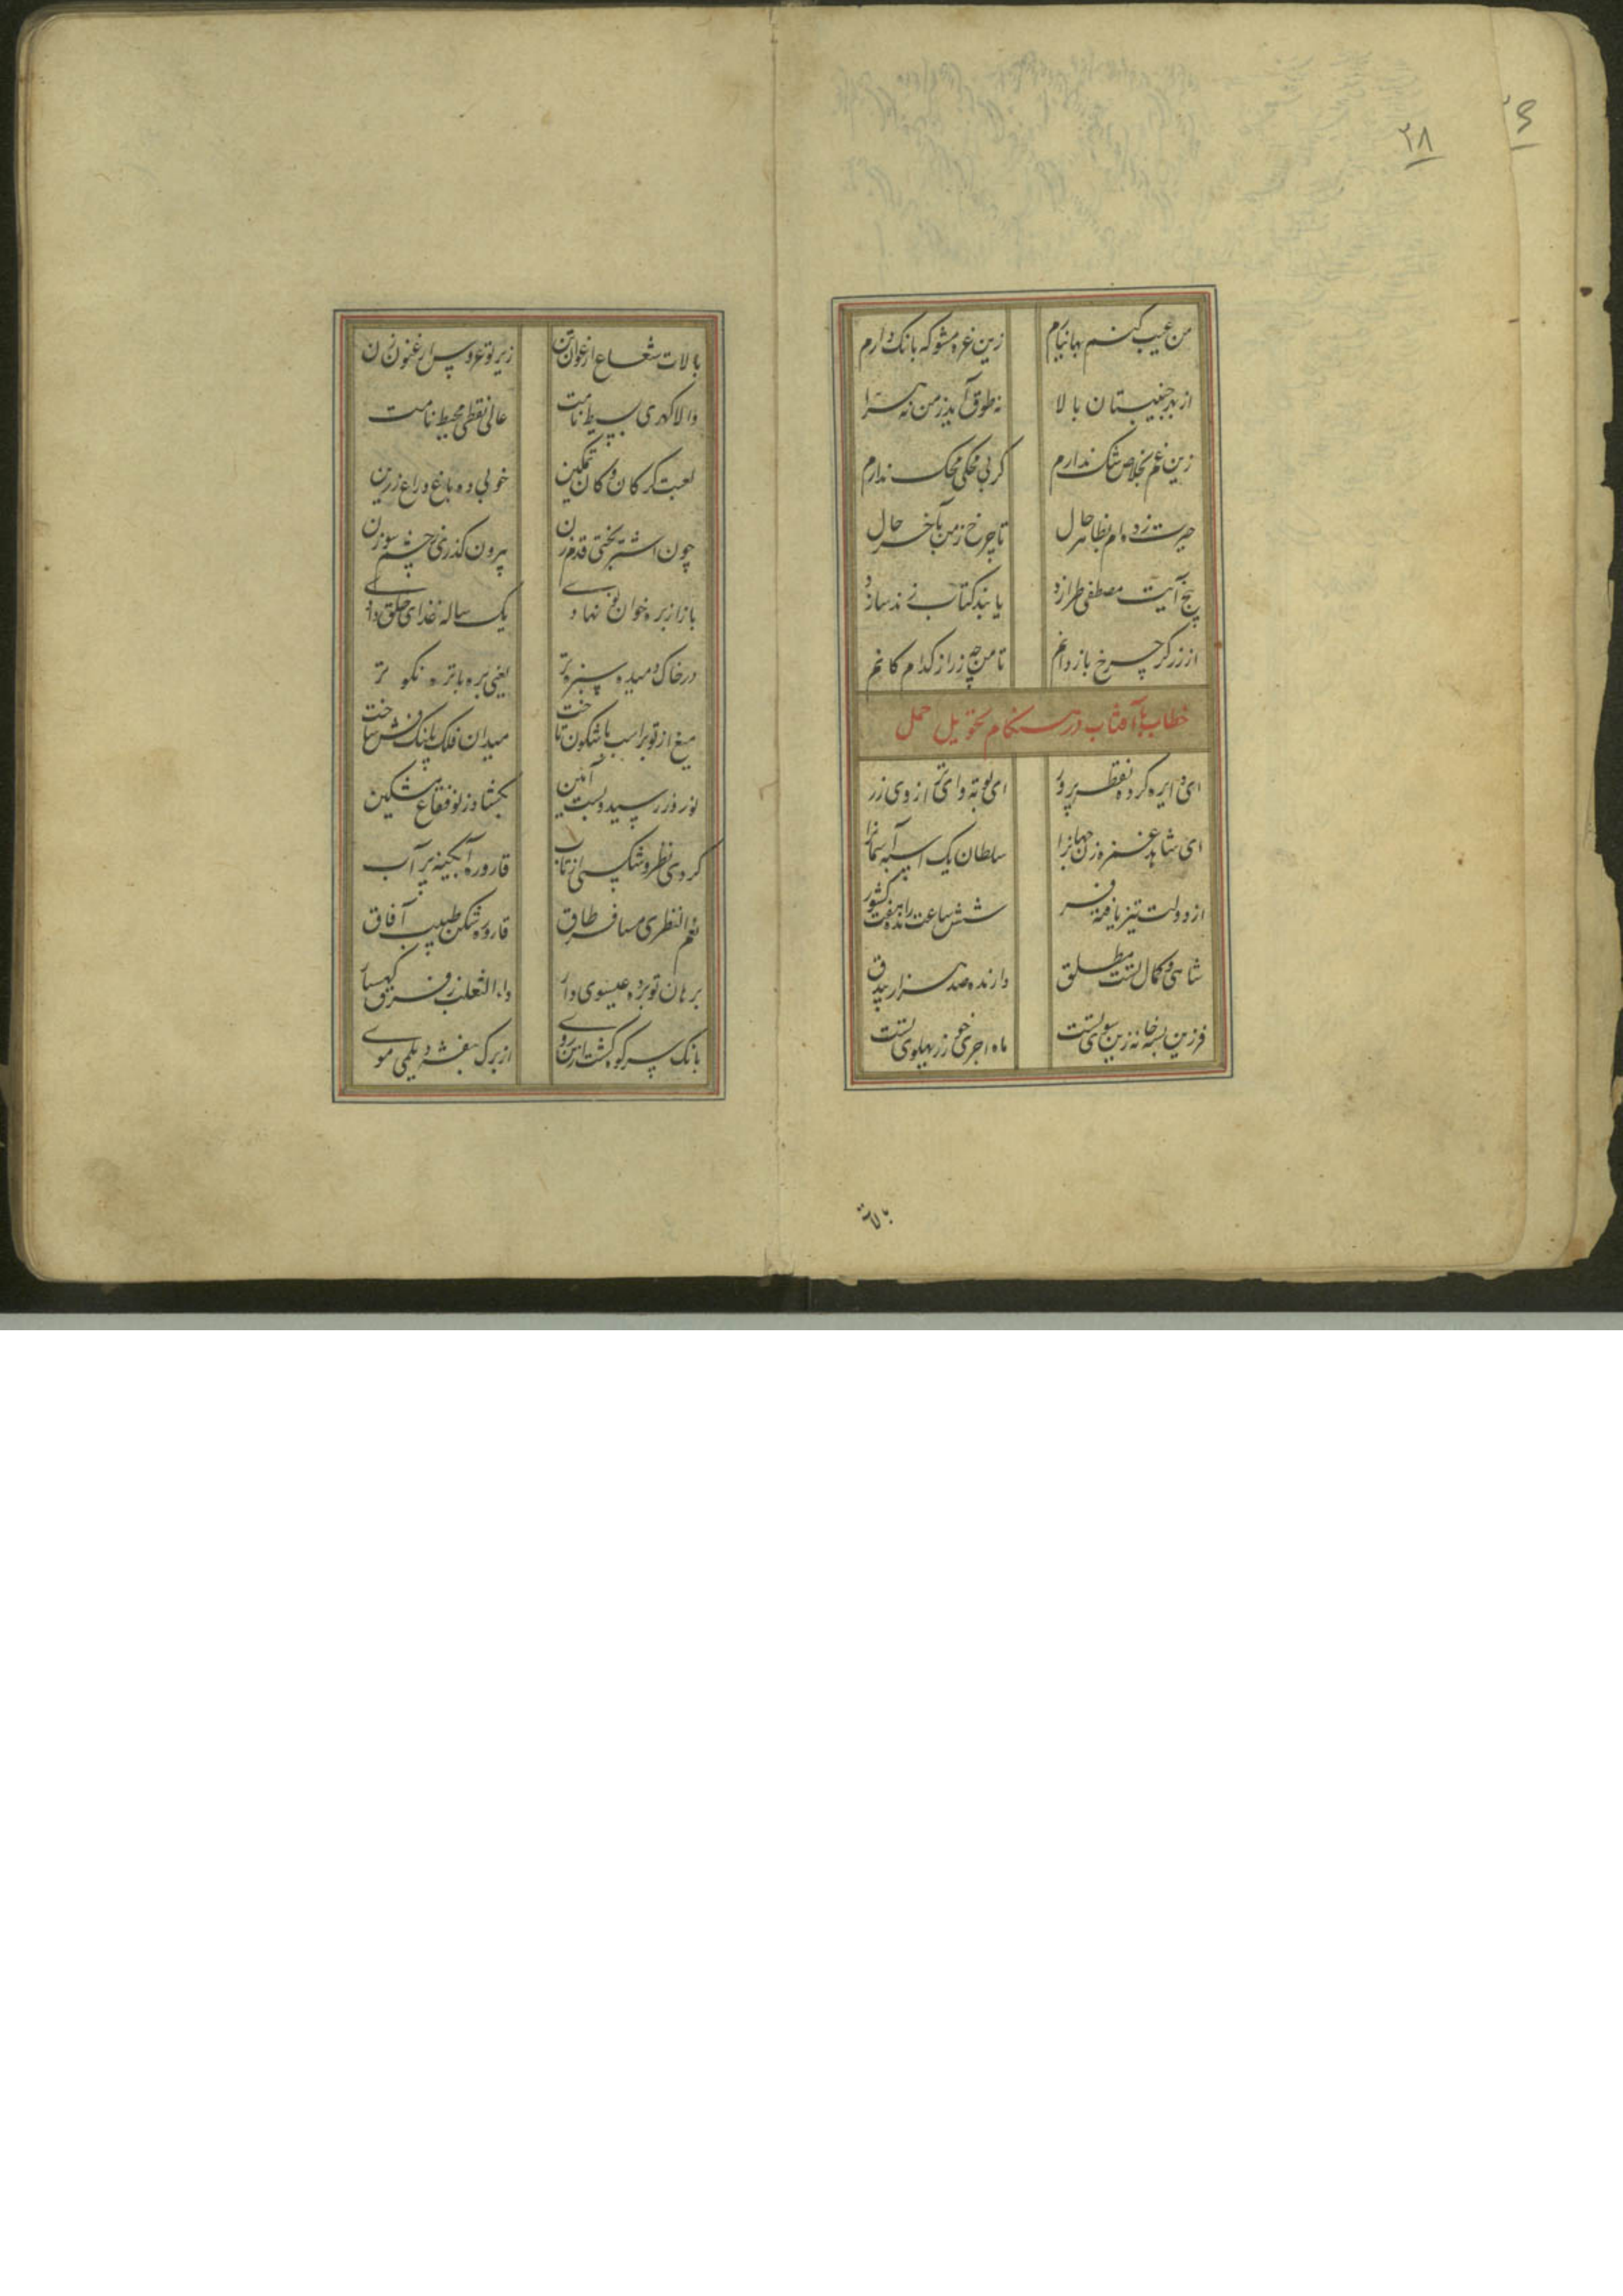 ۲۸
من عیب کنم بها نیارم
زین غره مشو که بانک دارم
از بهر جنیبتان بالا
نه طوق آید ز من نه هرا
زین غم بخلاص شک ندارم
کر بی محکی محک ندارم
حیرت زده ام بظاهر حال
تا چرخ ز من بآخر حال
پنج آیت مصطفی طرازد
یا بند کتاب زند سازد
از زرکر چرخ باز دانم
تا من چه زر از کدام کانم
خطاب بآفتاب در هنکام تحویل حمل
ای دایره کرده نقطه پرور
ای بوته وای از وی زر
ای شاهد غمزه زن جهانرا
سلطان یک اسبه آسمانرا
از دولت تیز یافته فر
شش ساعت رانده هفت کشور
شاهی و کمال تست مطلق
دارنده صد هزار بیدق
فرزین بسه خانه زین سوی تست
ماه اجری خور ز پهلوی تست
بالات
بالات شعاع ارغوان تن
زیر تو عروس ارغنون زن
والا کهری بسیط نامت
عالی نقطی محیط نامت
لعبت کر کان و کان تمکین
خوبی ده باغ و راغ زرین
چون اشتر بختی قدم زن
بیرون کذری ز چشم سوزن
باز از بره خوان نو نهادی
یک ساله غذای خلق دادی
در خاک دمیده سبزه تر
یعنی بره با تره نکوتر
میغ از تو بر اسب باشکون تاخت
میدان فلک پلنک وش ساخت
نوروز رسید و بست آئین
بکشاد ز نو فقاع مشکین
کردی نظر و شکستی از تاب
قاروره آبکینه پر آب
نعم النظری مسافر طاق
قاروره شکن طبیب آفاق
برهان تو برده عیسوی وار
داء الثعلب ز فرق کهسار
بانک سر کوه کشت ازین روی
از برک بنفشه دیلمی موی